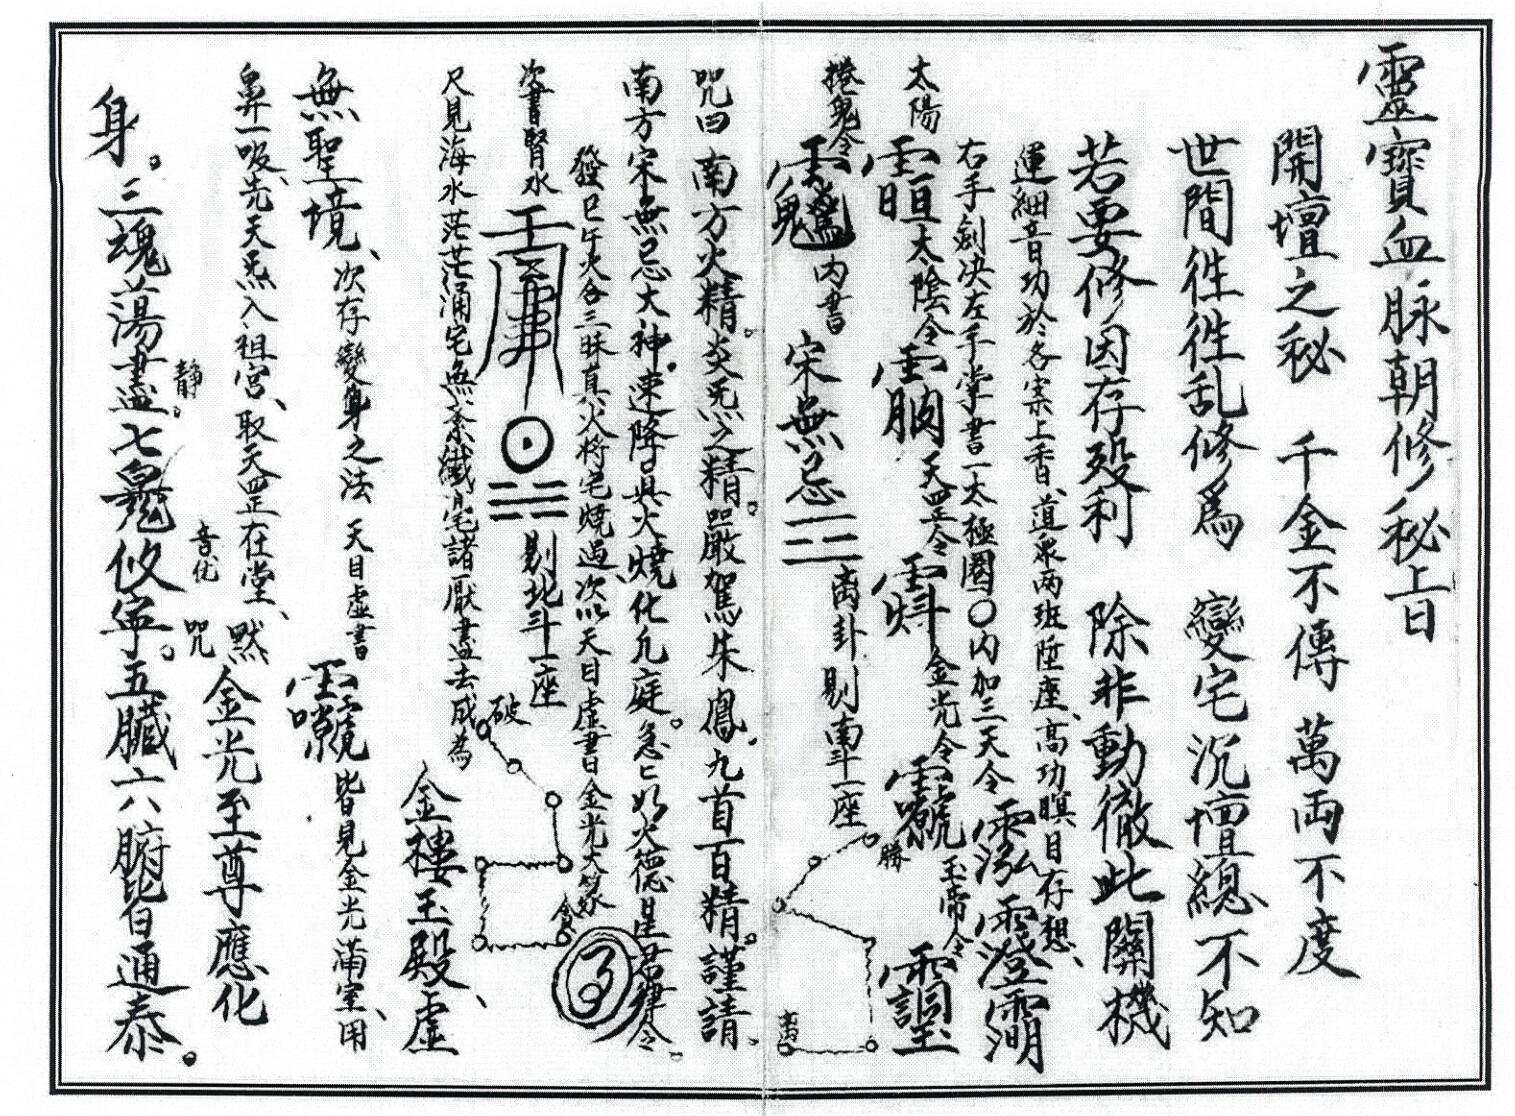 靈寶血脉朝修秘上曰
開壇之秘 千金不傳 萬両不度
世間徃徃乱修爲 變宅沉壇總不知
若要修因存殁利 除非動徹此關機
運細音功於各案上香、道衆两班陞座、高功瞑目存想、
右手劍决左手掌書一太極圈〇内加三天令
太陽 太陰令 天罡令 金光令 玉帝令
捲鬼令 内書 宋無忌 ☲ 离卦 剔南斗一座
勝
咒曰 南方火精。炎炁之精。嚴駕朱鳳。九首百精。謹請。
南方宋無忌大神。速降真火燒化凡庭。急匕如火德星君律令。
發巳午火合三昧真火将宅燒過次以天目虚書曰金光大篆
次書腎水 壬 ☵ 剔北斗一座
破
尺見海水茫茫涌宅無紊纖毫諸厭盡去成為
金樓玉殿、虚
無聖境、次存變身之法 天目虚書 皆見金光滿室、用
鼻一吸、先天炁入祖宮、取天罡在堂、默
咒 金光至尊應化
身。三魂蕩盡。七魄攸寧。五臟六腑皆通泰。
静
音優